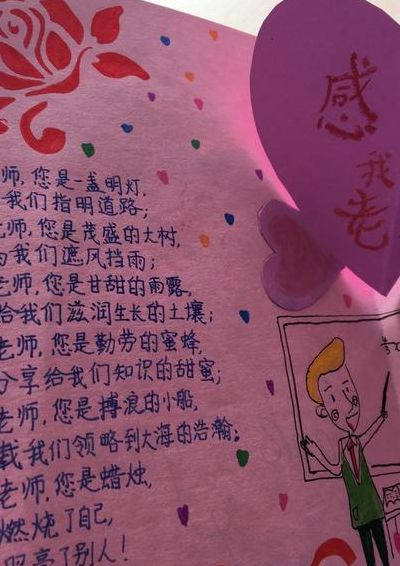 师,您是一盏明灯,
我们指明道路;
老师,您是茂盛的大树,
为我们遮风挡雨;
老师,您是甘甜的雨露,
给我们滋润生长的土壤;
老师,您是勤劳的蜜蜂,
分享给我们知识的甜蜜;
老师,您是搏浪的小船,
载我们领略到大海的浩瀚;
老师,您是蜡烛,
燃烧了自己,
照亮了别人!
感
我
老